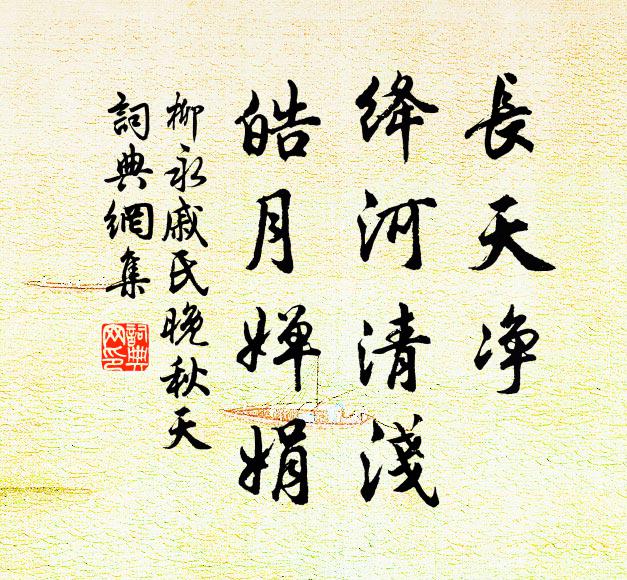 長天净
絳河清淺
皓月嬋娟
柳永戚氏晚秋天
詞典網集
詞典网印